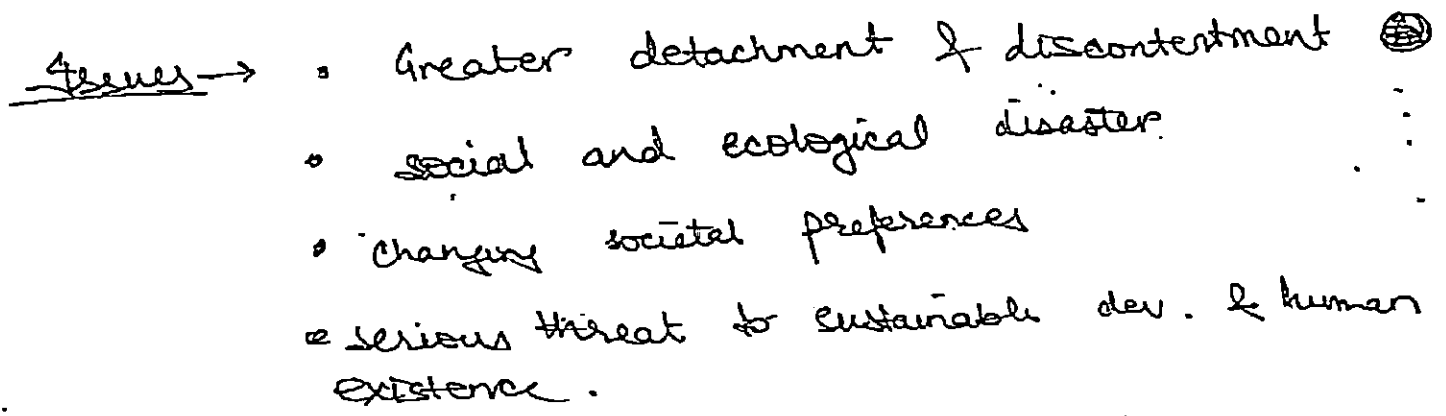 Issues → • Greater detachment & discontentment
• social and ecological disaster
• changing societal preferences
• serious threat to sustainable dev. & human
existence.